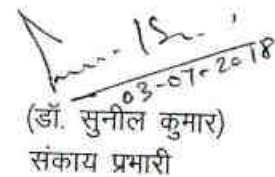 03-07-2018
(डॉ. सुनील कुमार)
संकाय प्रभारी